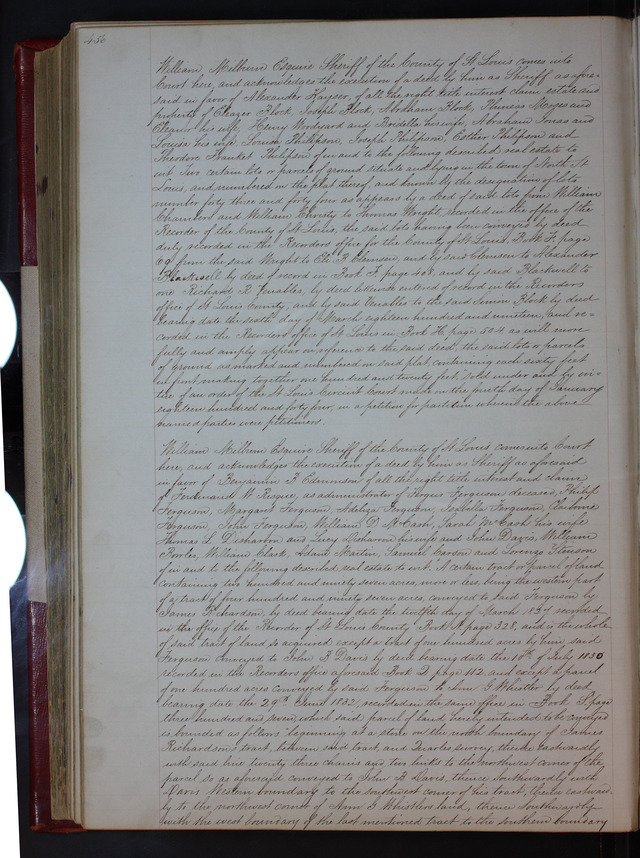 456
William Milburn Esquire Sheriff of the County of St. Louis comes into
Court here, and acknowledges the execution of a deed by him as Sheriff as afore-
said in favor of Alexander Kayser, of all the right title interest claim estate and
property of Eleazer Block, Joseph Block, Abraham Block, Phineas Moses and
Eleanor his wife, Henry Woodyard and Bridella his wife, Abraham Jonas and
Louisa his wife, Louisa Philipson, Joseph Philipson, Esther Philipson and
Theodore Frankes Philipson of in and to the following described real estate to
wit Two certain lots or parcels of ground situate and lying in the town of North St.
Louis, and numbered on the plat thereof and known by the designation of lots
number forty three and forty four as appears by a deed of said lots from William
Chambers and William Christy to Thomas Wright, recorded in the office of the
Recorder of the County of St. Louis, the said lots having been conveyed by deed
duly recorded in the Recorders office for the County of St Louis, Book F, page
69 from the said Wright to Eli B Clemson, and by said Clemson to Alexander
Blackwell by deed of record in Book F, page 408, and by said Blackwell to
one Richard D. Venables, by deed likewise entered of record in the Recorders
office of St Louis County, and by said Venables to the said Block by deed
bearing date the sixth day of March eighteen hundred and nineteen, and re-
corded in the Recorders office of St Louis in Book H, page 584 as will more
fully and amply appear on reference to the said deed, the said lots or parcels
of ground as marked and numbered on said plat, containing each sixty feet
in front making together one hundred and twenty feet. Sold under and by vir-
tue of an order of the St Louis Circuit Court made on the day of January
eighteen hundred and forty four, in a petition for partition wherein the above
named parties were petitioners.
William Milburn Esquire Sheriff of the County of St Louis comes into Court
here, and acknowledges the execution of a deed by him as Sheriff as aforesaid
in favor of Benjamin F Edmonson of all the right title interest and claim
of Ferdinand W. Risque, as administrator of Fergus Ferguson deceased, Philip
Ferguson, Margaret Ferguson, Adeliza Ferguson, Isabella Ferguson, Claiborne
Ferguson, John Ferguson, William D McCash, Sarah McCash his wife
Thomas L. Disharoon and Lucy Disharoon his wife and John Davis, William
Bowles, William Clark, Adam Martin, Samuel Carson and Lorenzo Stinson
of in and to the following described real estate to wit. A certain tract or parcel of land
containing two hundred and ninety seven acres, more or less being the western part
of a tract of four hundred and ninety seven acres, conveyed to said Ferguson by
James Richardson, by deed bearing date the twelfth day of March 1827 recorded
in the office of the Recorder of St Louis County Book N. page 328, and is the whole
of said tract of land so acquired except a tract of one hundred acres by him said
Ferguson conveyed to John B Davis by deed bearing date the 10th of July 1830
recorded in the Recorders office aforesaid Book Q page 112, and except a parcel
of one hundred acres conveyed by said Ferguson to Ann G Whistler by deed
bearing date the 29th June 1832, recorded in the same office in Book S, page
three hundred and seven, which said parcel of land hereby intended to be conveyed
is bounded as follows beginning at a stone on the north boundary of James
Richardsons tract between said tract, and Quarles survey, thence eastwardly
with said line twenty three chains and two links to the northwest corner of the
parcel so as aforesaid conveyed to John B Davis, thence southwardly with
Davis Western boundary to the southwest corner of his tract, thence eastward-
ly to the northwest corner of Ann G Whistlers land, thence southwardly
with the west boundary of the last mentioned tract to the southern boundary